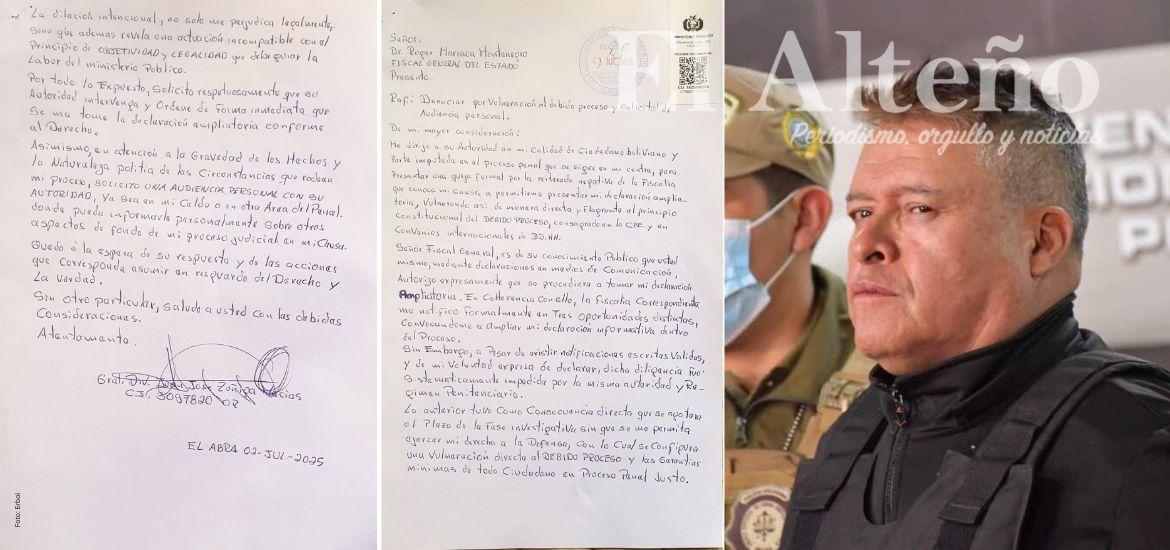 La dilación intencional, no solo me perjudica legalmente,
sino que ademas revela una actuación incompatible con el
Principio de OBJETIVIDAD y LEGALIDAD que debe guiar la
Labor del ministerio Público.
Por todo lo Expuesto, Solicito respetuosamente que su
Autoridad intervenga y Ordene de Forma inmediata que
Se me tome la declaración ampliatoria conforme
al Derecho.
Asimismo, en atención a la Gravedad de los Hechos y
la Naturaleza politia de las Circunstancias que rodean
mi proceso, SOLICITO UNA AUDIENCIA PERSONAL CON SU
AUTORIDAD, ya sea en mi Celda o en otra Area del Penal.
donde pueda informarle personalmente sobre otros
aspectos de fondo de mi proceso judicial en mi Causa.
Quedo a la espera de su respuesta y de las acciones
que corresponda asumir en resguardo del Derecho y
La Verdad.
Sin otro particular, saludo a usted con las debidas
Consideraciones.
Atentamente.
Gral. Div. Juan José Zuñiga Macias
C.I. 3097820 OR
EL ABRA 02-JUL-2025
Foto: Erbol
Señor:
Dr. Roger Mariaca Montenegro
FISCAL GENERAL DEL ESTADO
Presente.
MINISTERIO PÚBLICO
Ref: Denuncia por Vulneración al debido proceso y solicitud de
Audiencia personal.
De mi mayor consideración:
Me dirijo a su Autoridad en mi Calidad de Ciudadano boliviano y
Parte imputada en el proceso penal que se sigue en mi contra, para
Presentar una queja formal por la reiterada negativa de la Fiscalia
que conoce mi causa a permitirme presentar mi declaración amplia-
toria, Vulnerando asi de manera directa y Flagrante al principio
Constitucional del DEBIDO PROCESO, consagrado en la CPE. y en
Convenios internacionales de DD.HH.
Señor Fiscal General, es de su conocimiento Público que usted
mismo, mediante declaraciones en medios de Comunicación,
Autorizo expresamente que se procediera a tomar mi declaración
Ampliatoria. En Coherencia con ello, la Fiscalia Correspondiente
me notifico Formalmente en Tres oportunidades distintas,
Convocandome a ampliar mi declaración informativa dentro
del Proceso.
Sin Embargo, a Pesar de existir notificaciones escritas Validas,
y de mi Voluntad expresa de declarar, dicha diligencia Fue
Sistematicamente impedida por la misma autoridad y Re-
gimen Penitenciario.
Lo anterior tuvo Como Consecuencia directa que se agotara
el Plazo de la Fase investigativa sin que se me permita
ejercer mi derecho a la Defensa, con lo Cual se Configura
una Vulneración directa al DEBIDO PROCESO y las Garantias
minimas de todo Ciudadano en Proceso Penal Justo.
El Alteño
Periodismo, orgullo y noticias